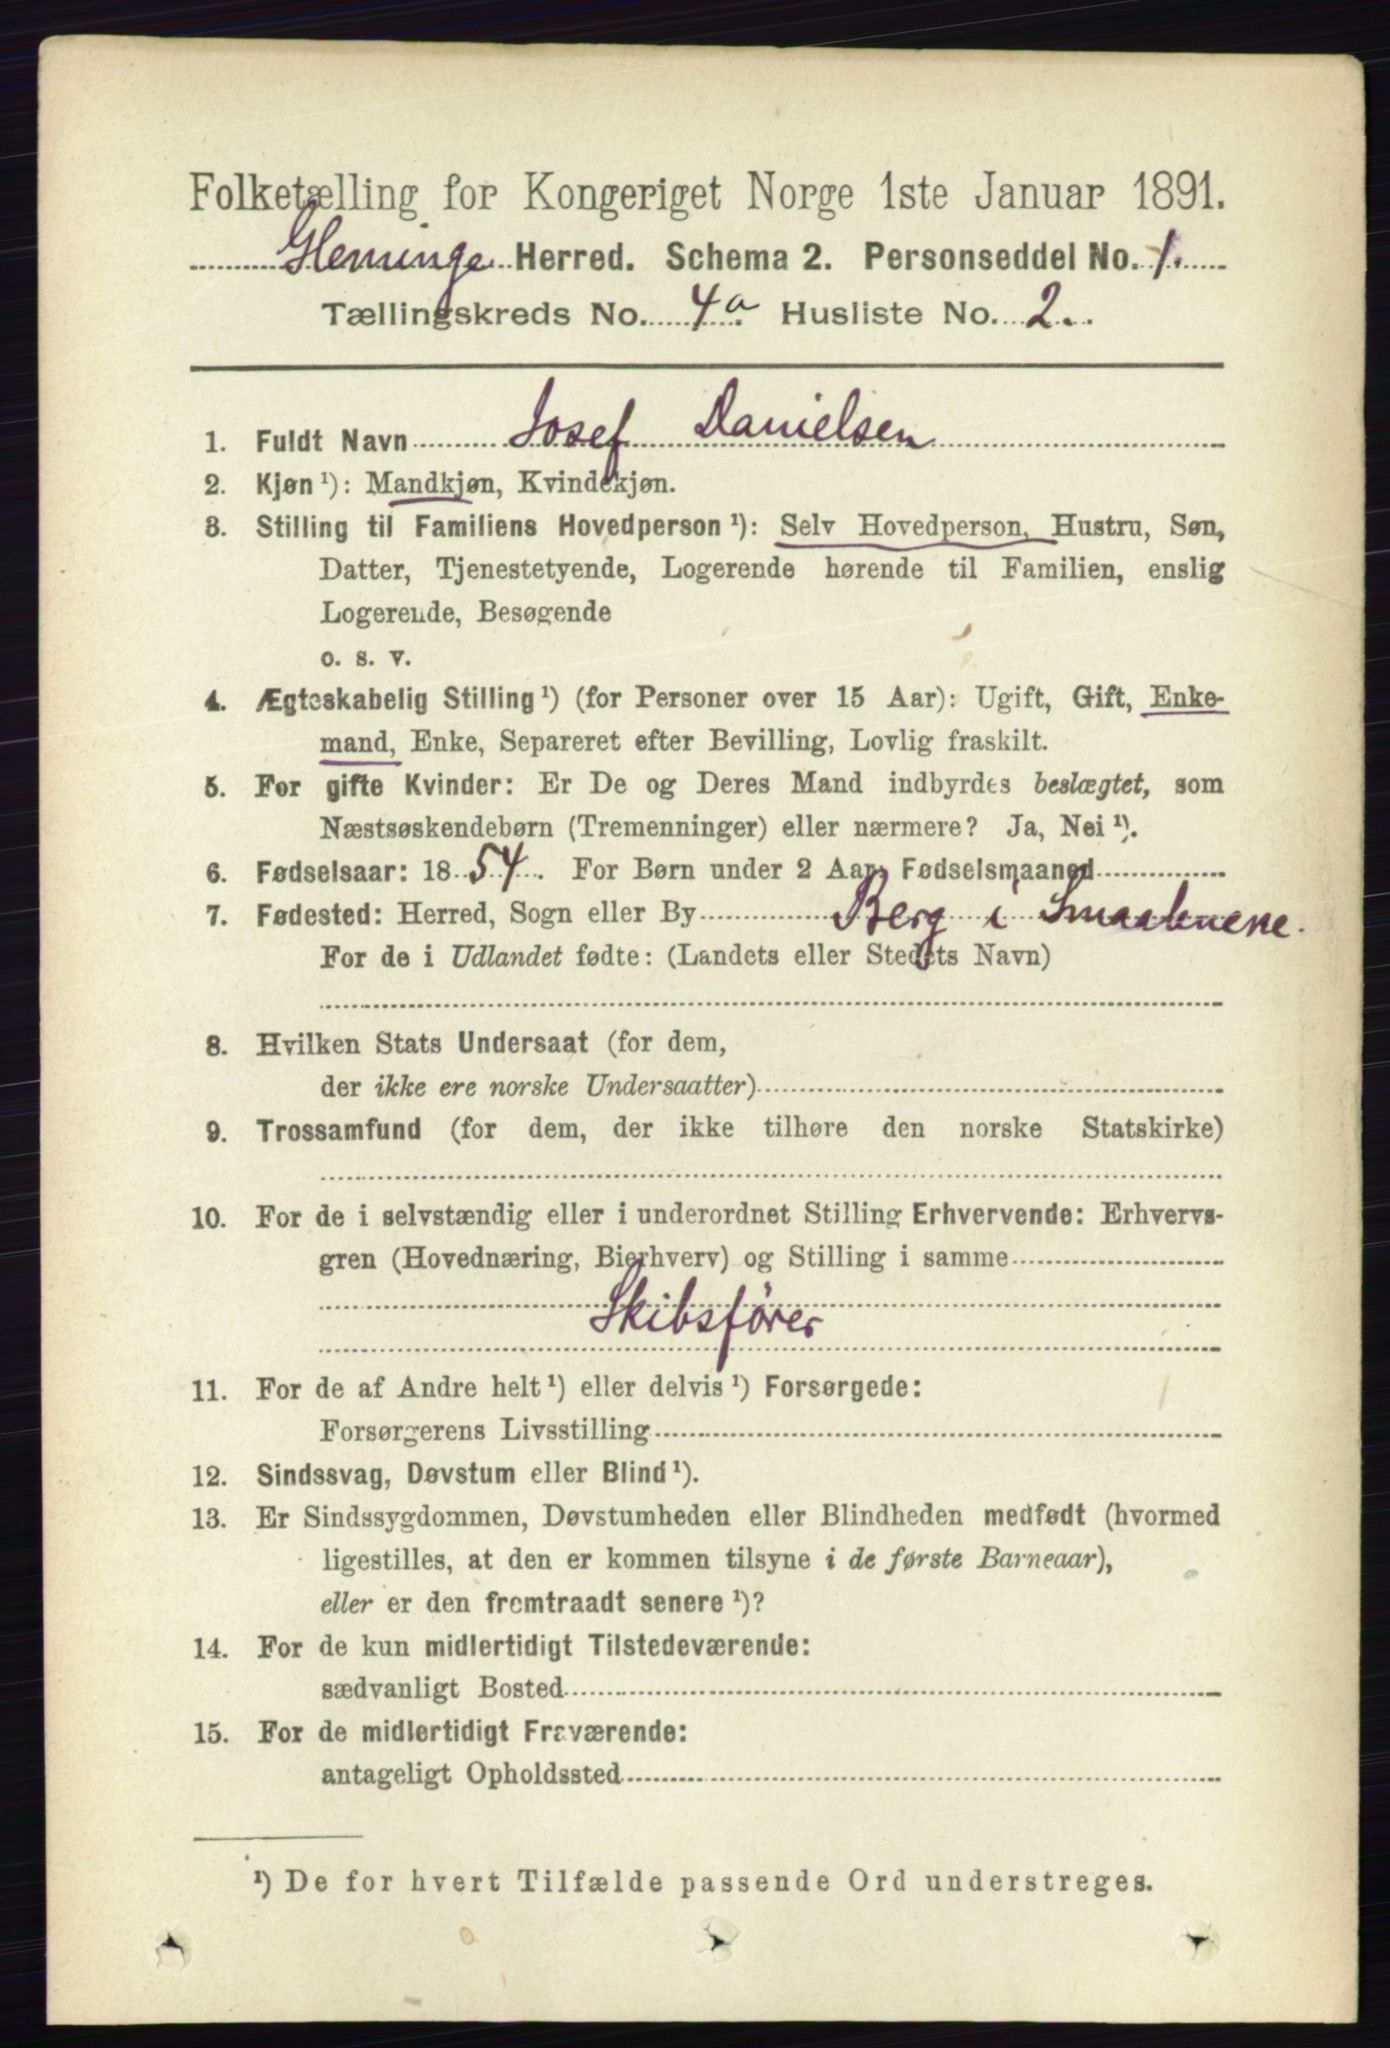 Folketælling for Kongeriget Norge 1ste Januar 1891.
Glemminge Herred. Schema 2. Personseddel No. 1.
Tællingskreds No. 4a Husliste No. 2.
1. Fuldt Navn Josef Danielsen
2. Kjøn ¹): Mandkjøn, Kvindekjøn.
3. Stilling til Familiens Hovedperson ¹): Selv Hovedperson, Hustru, Søn,
Datter, Tjenestetyende, Logerende hørende til Familien, enslig
Logerende, Besøgende
o. s. v.
4. Ægteskabelig Stilling ¹) (for Personer over 15 Aar): Ugift, Gift, Enke-
mand, Enke, Separeret efter Bevilling, Lovlig fraskilt.
5. For gifte Kvinder: Er De og Deres Mand indbyrdes beslægtet, som
Næstsøskendebørn (Tremenninger) eller nærmere? Ja, Nei ¹).
6. Fødselsaar: 1854. For Børn under 2 Aar, Fødselsmaaned
7. Fødested: Herred, Sogn eller By Berg i Smaalenene.
For de i Udlandet fødte: (Landets eller Stedets Navn)
8. Hvilken Stats Undersaat (for dem,
der ikke ere norske Undersaatter)
9. Trossamfund (for dem, der ikke tilhøre den norske Statskirke)
10. For de i selvstændig eller i underordnet Stilling Erhvervende: Erhvervs-
gren (Hovednæring, Bierhverv) og Stilling i samme
Skibsfører
11. For de af Andre helt ¹) eller delvis ¹) Forsørgede:
Forsørgerens Livsstilling
12. Sindssvag, Døvstum eller Blind ¹).
13. Er Sindssygdommen, Døvstumheden eller Blindheden medfødt (hvormed
ligestilles, at den er kommen tilsyne i de første Barneaar),
eller er den fremtraadt senere ¹)?
14. For de kun midlertidigt Tilstedeværende:
sædvanligt Bosted
15. For de midlertidigt Fraværende:
antageligt Opholdssted
¹) De for hvert Tilfælde passende Ord understreges.